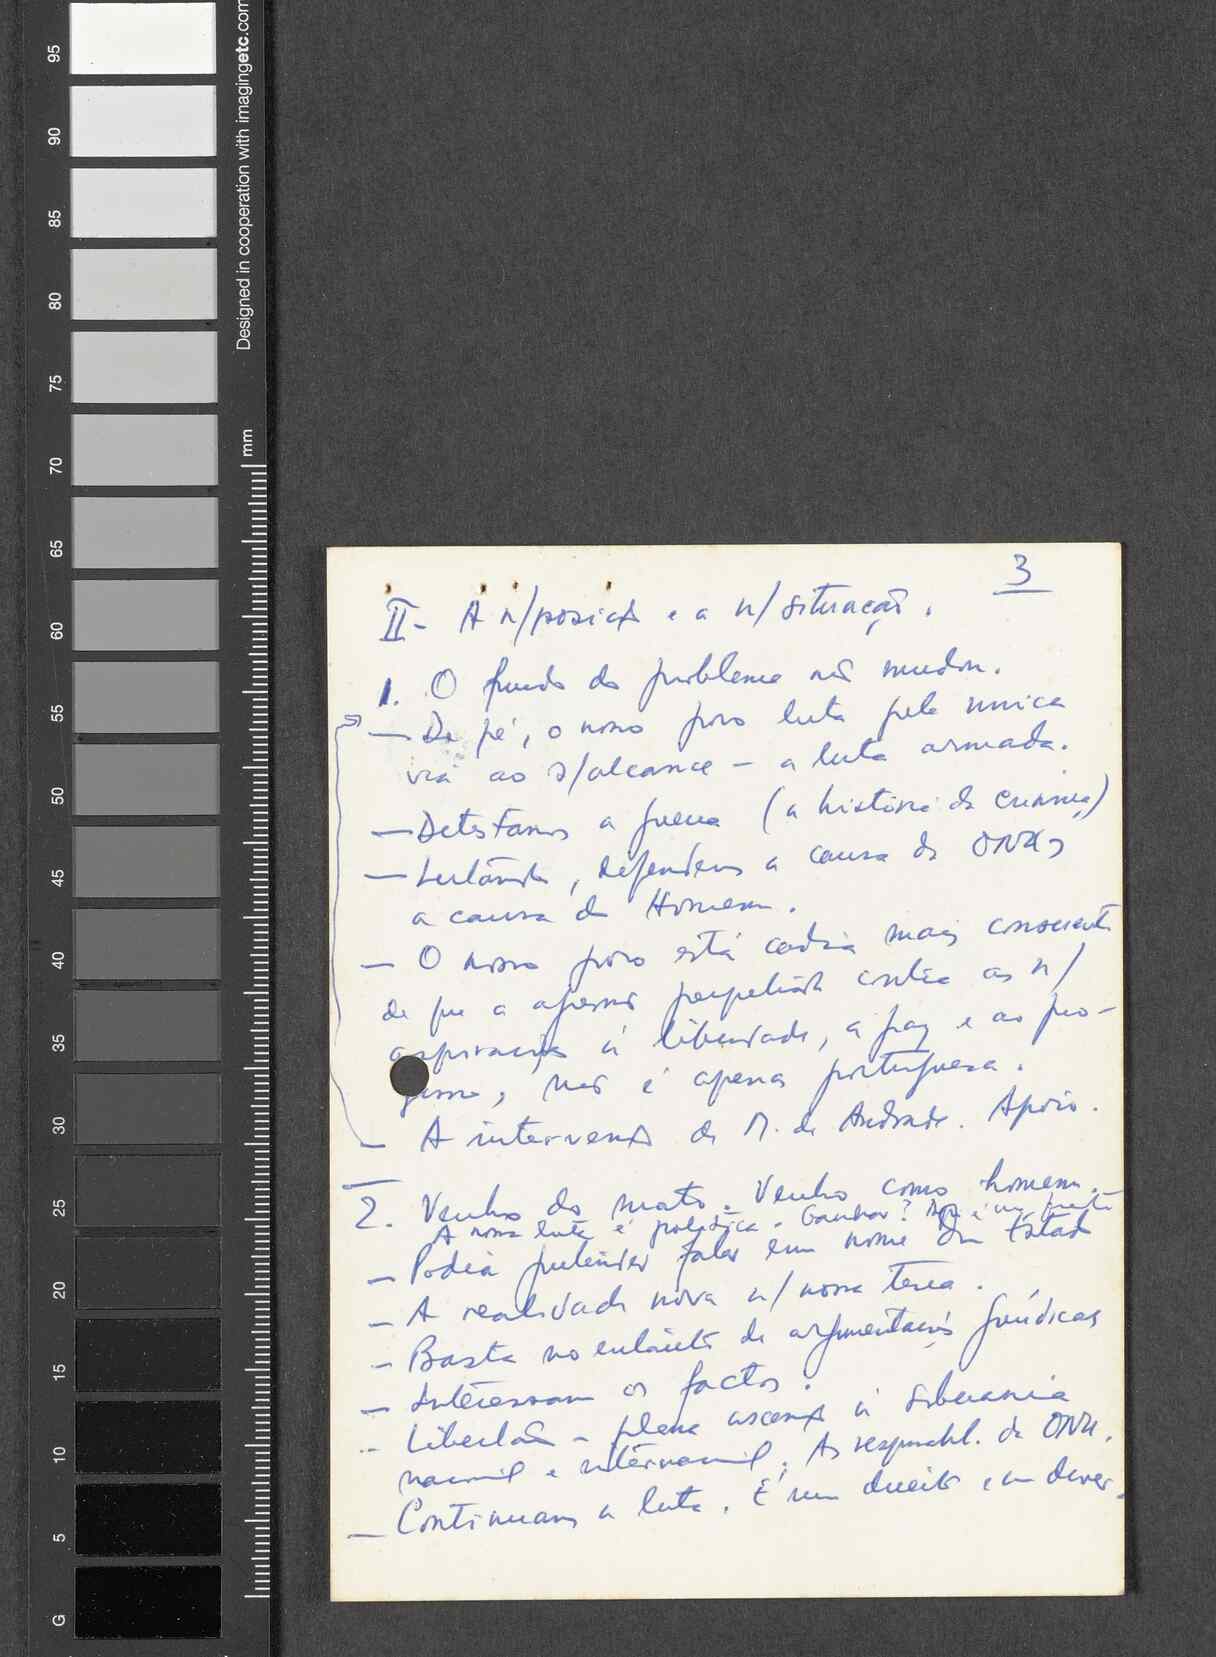 95
90
85
80
75
70
65
60
55
50
45
40
35
30
25
20
15
10
5
G
Designed in cooperation with imagingetc.com
mm
3
II - A n/posição e a n/situação.
1. O fundo do problema não mudou.
— De pé, o nosso povo luta pela unica
via ao s/alcance – a luta armada.
— Detestamos a guerra (a história da criança)
— Lutando, defendemos a causa da ONU,
a causa do Homem.
— O nosso povo está cada mais consciente
de que a agressão perpetrada contra as n/
aspirações à liberdade, a paz e ao pro-
gresso, não é apenas portuguesa.
— A intervenção de M. de Andrade. Apoio.
2. Venho do mato. Venho como homem.
A nossa luta é política. Ganhar?
— Podia pretender falar em nome dum Estado
— A realidade nova n/ nossa terra.
— Basta no entanto de argumentações jurídicas
— Interessam os factos.
— Libertação – plena ascensão à soberania
nacional e internacional. As responsabil. da ONU.
— Continuamos a luta. É um direito e um dever.